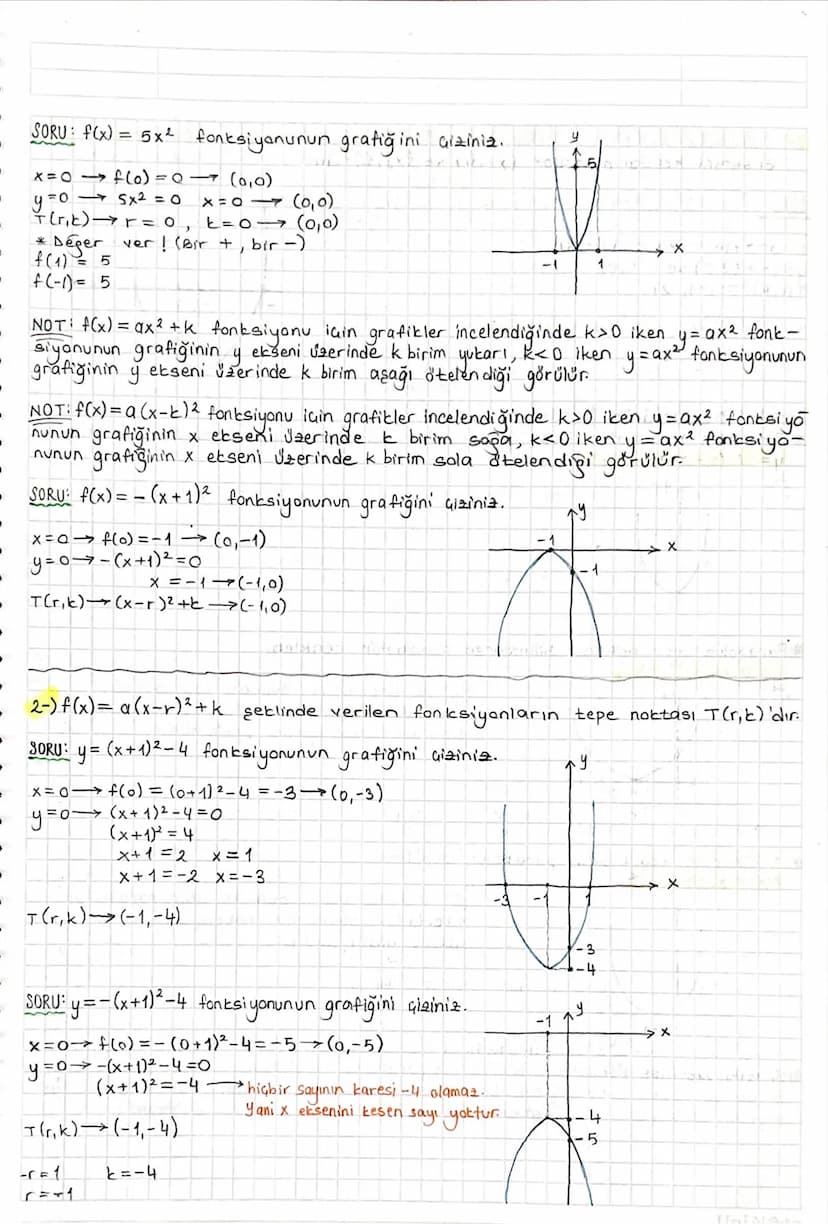 SORU: f(x) = 5x² fonksiyonunun grafiğini çiziniz.
x=0 → f(0) = 0 → (0,0)
y=0 → 5x² = 0 x=0 → (0,0)
T(r,k) → r = 0, k=0 → (0,0)
* Değer ver! (Bir +, bir -)
f(1) = 5
f(-1) = 5
y
5
x
-1 1
NOT: f(x) = ax² + k fonksiyonu için grafikler incelendiğinde k>0 iken y=ax² fonk-
siyonunun grafiğinin y ekseni üzerinde k birim yukarı, k<0 iken y=ax² fonksiyonunun
grafiğinin y ekseni üzerinde k birim aşağı ötelendiği görülür.
NOT: f(x) = a(x-k)² fonksiyonu için grafikler incelendiğinde k>0 iken y=ax² fonksiyo
nunun grafiğinin x ekseni üzerinde k birim sağa, k<0 iken y=ax² fonksiyo-
nunun grafiğinin x ekseni üzerinde k birim sola ötelendiği görülür.
SORU: f(x) = -(x+1)² fonksiyonunun grafiğini çiziniz.
x=0 → f(0) = -1 → (0,-1)
y=0 → -(x+1)² = 0
x = -1 → (-1,0)
T(r,k) → (x-r)² + k → (-1,0)
y
-1
x
-1
2-) f(x) = a(x-r)² + k şeklinde verilen fonksiyonların tepe noktası T(r,k)'dır.
SORU: y = (x+1)² - 4 fonksiyonunun grafiğini çiziniz.
x=0 → f(0) = (0+1)² - 4 = -3 → (0,-3)
y=0 → (x+1)² - 4 = 0
(x+1)² = 4
x+1 = 2 x = 1
x+1 = -2 x = -3
T(r,k) → (-1,-4)
y
x
-3 -1 1
-3
-4
SORU: y = -(x+1)² - 4 fonksiyonunun grafiğini çiziniz.
x=0 → f(0) = -(0+1)² - 4 = -5 → (0,-5)
y=0 → -(x+1)² - 4 = 0
(x+1)² = -4 → hiçbir sayının karesi -4 olamaz.
Yani x eksenini kesen sayı yoktur.
T(r,k) → (-1,-4)
-r = 1 k = -4
r = -1
y
-1
x
-4
-5